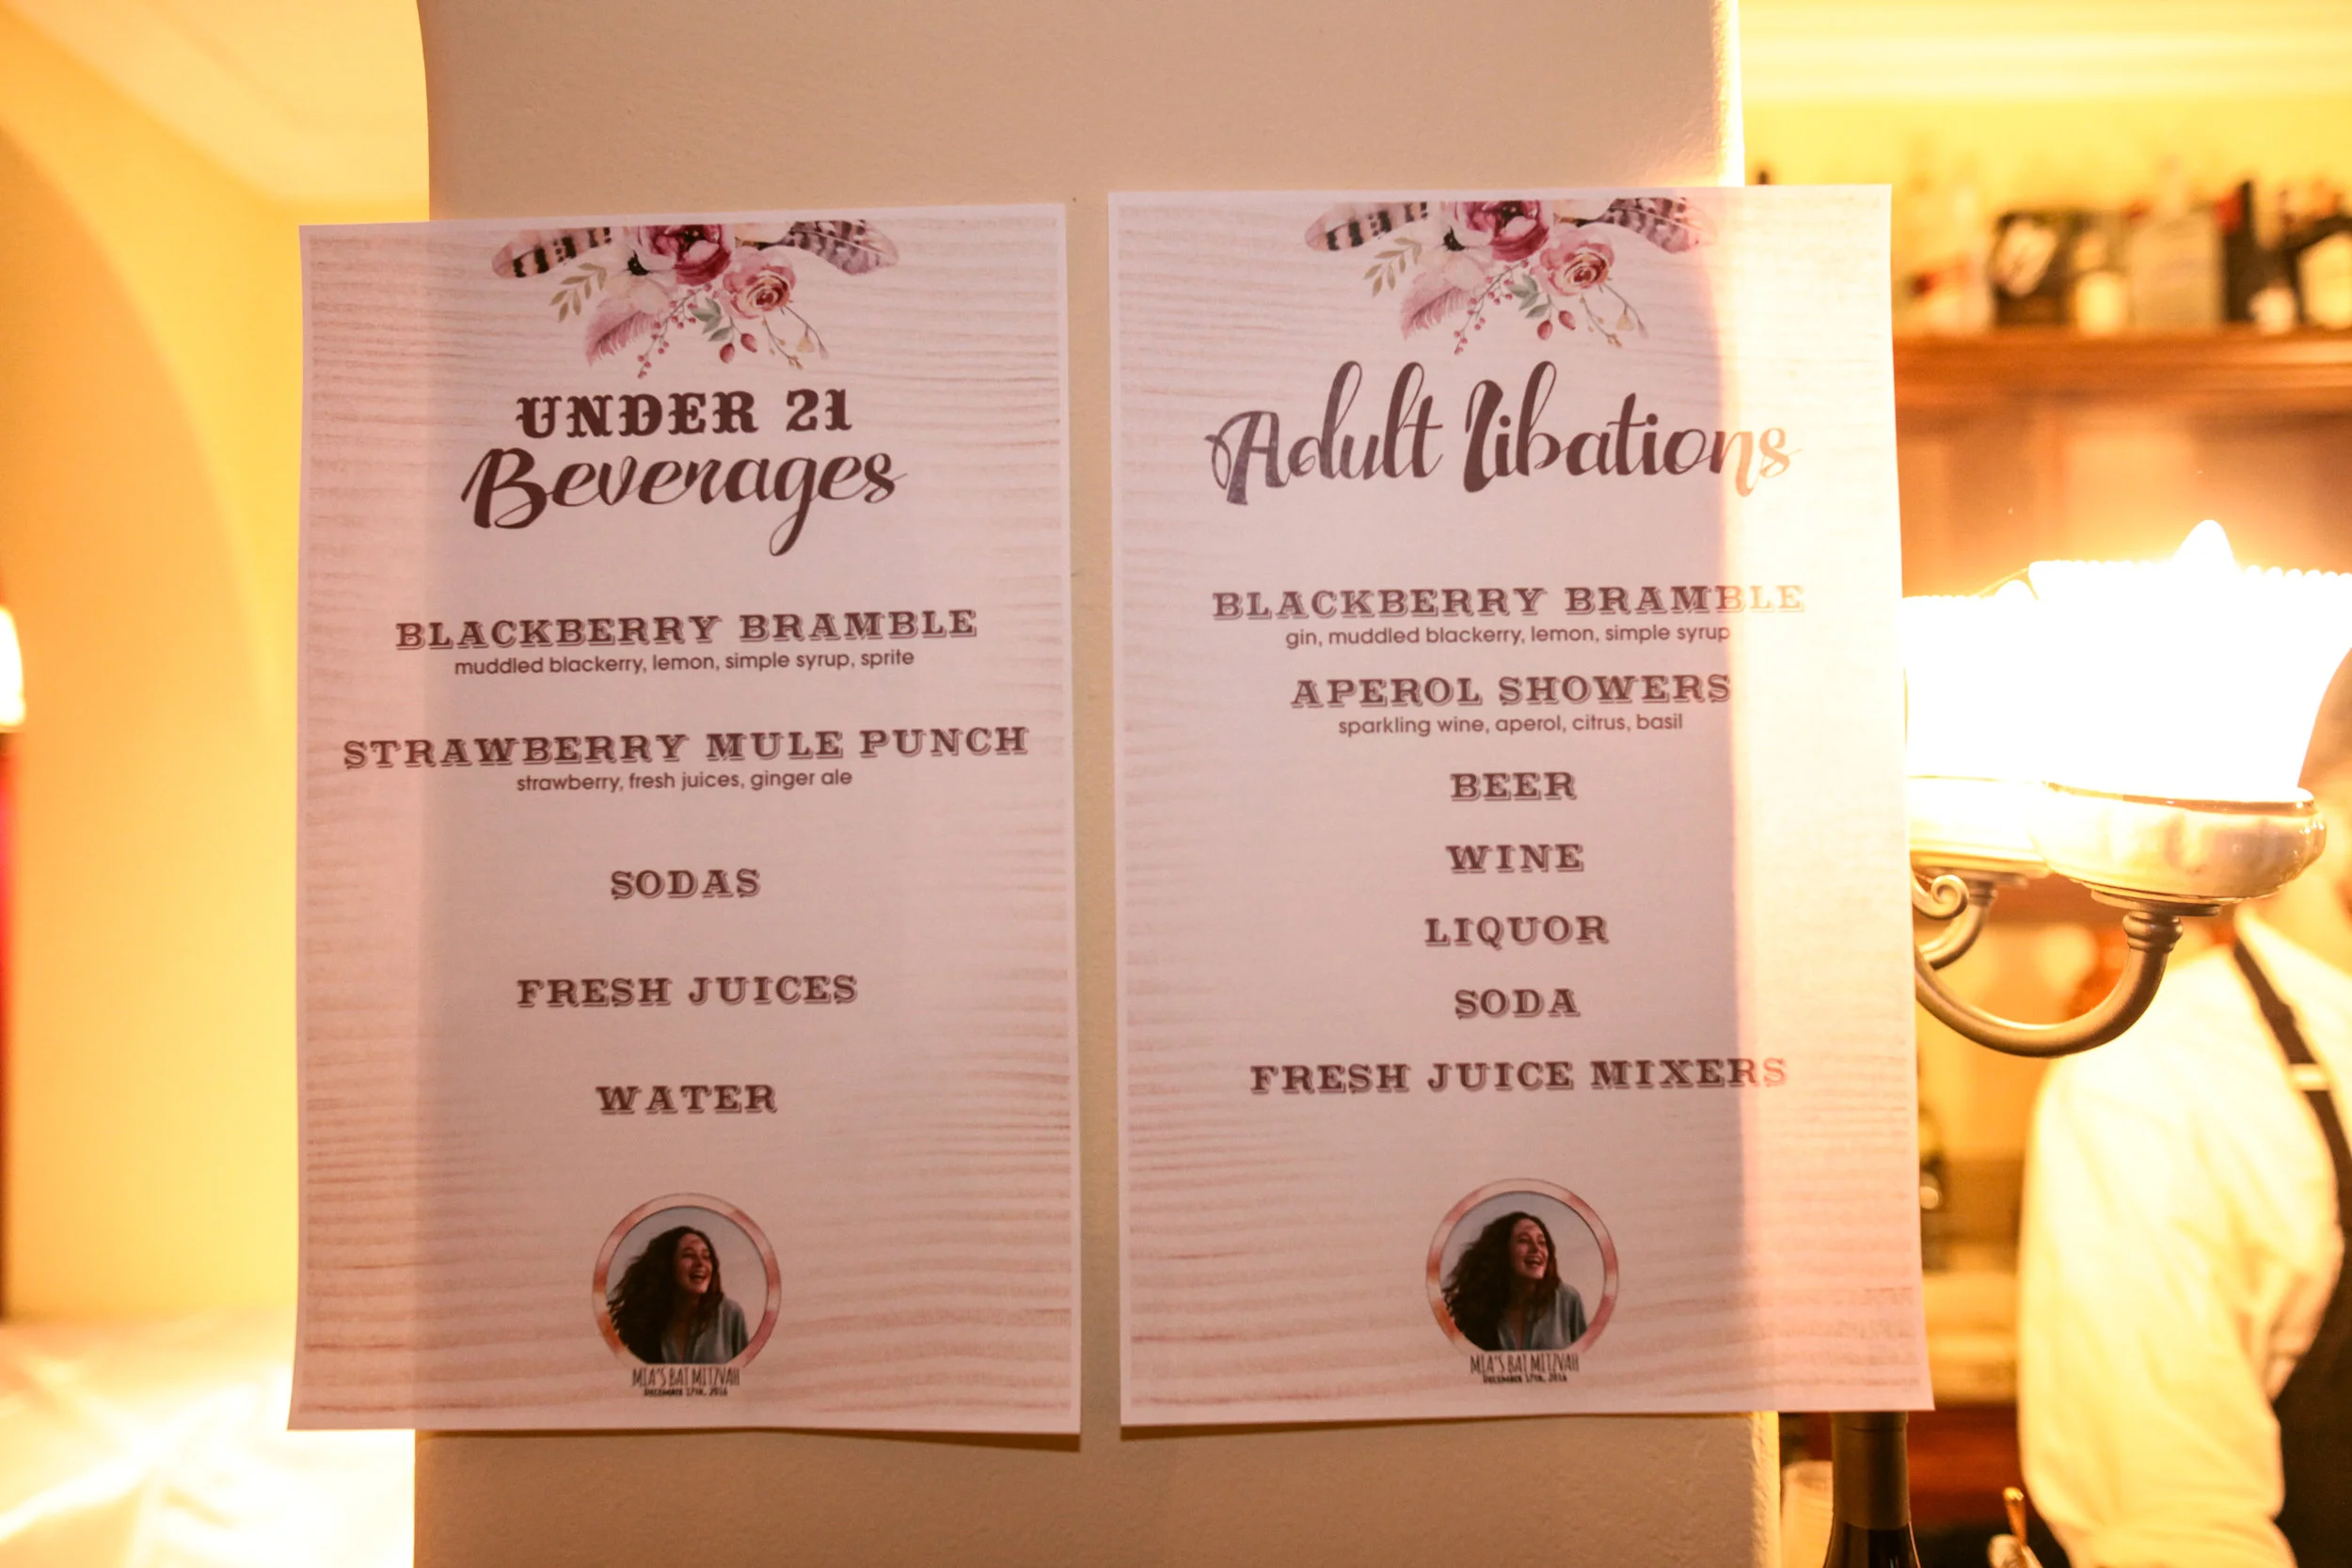 UNDER 21
Beverages
BLACKBERRY BRAMBLE
muddled blackerry, lemon, simple syrup, sprite
STRAWBERRY MULE PUNCH
strawberry, fresh juices, ginger ale
SODAS
FRESH JUICES
WATER
MIA'S BAT MITZVAH
DECEMBER 17TH, 2016
Adult libations
BLACKBERRY BRAMBLE
gin, muddled blackerry, lemon, simple syrup
APEROL SHOWERS
sparkling wine, aperol, citrus, basil
BEER
WINE
LIQUOR
SODA
FRESH JUICE MIXERS
MIA'S BAT MITZVAH
DECEMBER 17TH, 2016